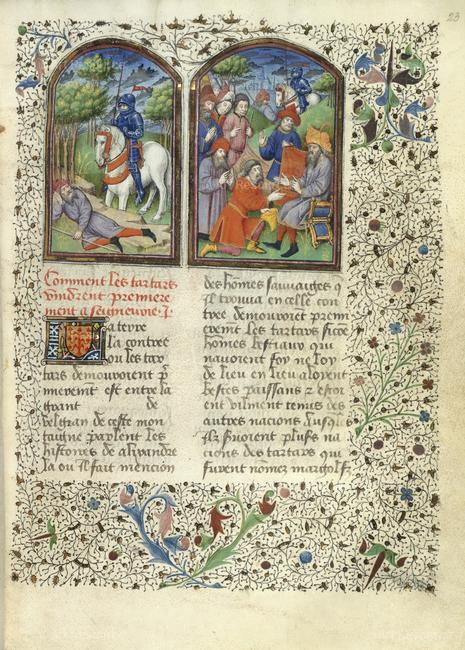 23
Comment les tartars
vindrent premiere
ment a seigneurie. J.
La terre
la contree
ou les tar
tars demouroient p
mierement est entre la
grant de
belgran de ceste mon
taigne parlent les
histoires de alixandre
la ou il fait mencion
des hommes sauuaiges q
Il trouua en celle con
tree demouroient prem
ierement les tartars sicõe
hõmes bestiaux qui
nauoient foy ne loy
de lieu en lieu aloyent
bestes paissans z estoi
ent vilment tenus des
autres nacions a
Ilz seruoient pluss na
cions des tartars qui
furent nõmez